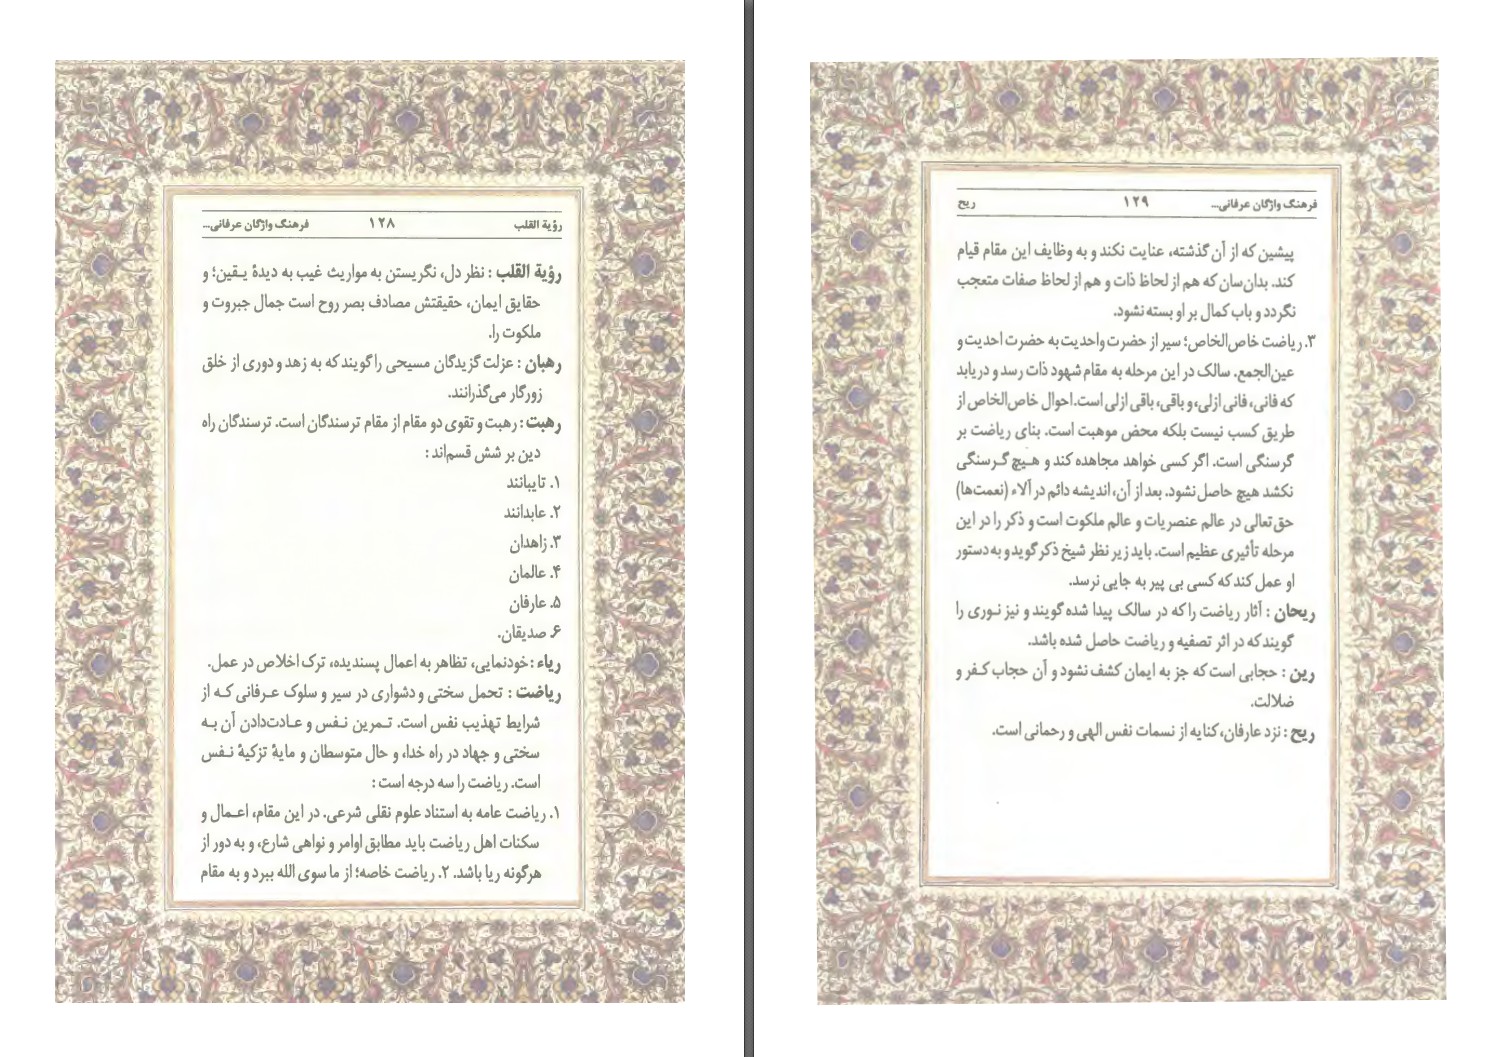 رؤیة القلب ۱۲۸ فرهنگ واژگان عرفانی...
رؤیة القلب : نظر دل، نگریستن به مواریث غیب به دیدهٔ یـقین؛ و
حقایق ایمان، حقیقتش مصادف بصر روح است جمال جبروت و
ملکوت را.
رهبان : عزلت گزیدگان مسیحی را گویند که به زهد و دوری از خلق
زورگار می‌گذرانند.
رهبت : رهبت و تقوی دو مقام از مقام ترسندگان است. ترسندگان راه
دین بر شش قسم‌اند :
۱. تایبانند
۲. عابدانند
۳. زاهدان
۴. عالمان
۵. عارفان
۶. صدیقان.
ریاء : خودنمایی، تظاهر به اعمال پسندیده، ترک اخلاص در عمل.
ریاضت : تحمل سختی و دشواری در سیر و سلوک عـرفانی کـه از
شرایط تهذیب نفس است. تـمرین نـفس و عـادت‌دادن آن بـه
سختی و جهاد در راه خدا، و حال متوسطان و مایهٔ تزکیهٔ نـفس
است. ریاضت را سه درجه است :
۱. ریاضت عامه به استناد علوم نقلی شرعی. در این مقام، اعـمال و
سکنات اهل ریاضت باید مطابق اوامر و نواهی شارع، و به دور از
هرگونه ریا باشد. ۲. ریاضت خاصه؛ از ما سوی الله ببرد و به مقام
فرهنگ واژگان عرفانی... ۱۲۹ ریح
پیشین که از آن گذشته، عنایت نکند و به وظایف این مقام قیام
کند. بدان‌سان که هم از لحاظ ذات و هم از لحاظ صفات متعجب
نگردد و باب کمال بر او بسته نشود.
۳. ریاضت خاص‌الخاص؛ سیر از حضرت واحدیت به حضرت احدیت و
عین‌الجمع. سالک در این مرحله به مقام شهود ذات رسد و دریابد
که فانی، فانی ازلی، و باقی، باقی ازلی است. احوال خاص‌الخاص از
طریق کسب نیست بلکه محض موهبت است. بنای ریاضت بر
گرسنگی است. اگر کسی خواهد مجاهده کند و هـیچ گـرسنگی
نکشد هیچ حاصل نشود. بعد از آن، اندیشه دائم در آلاء (نعمت‌ها)
حق‌تعالی در عالم عنصریات و عالم ملکوت است و ذکر را در این
مرحله تأثیری عظیم است. باید زیر نظر شیخ ذکر گوید و به دستور
او عمل کند که کسی بی پیر به جایی نرسد.
ریحان : آثار ریاضت را که در سالک پیدا شده گویند و نیز نـوری را
گویند که در اثر تصفیه و ریاضت حاصل شده باشد.
رین : حجابی است که جز به ایمان کشف نشود و آن حجاب کـفر و
ضلالت.
ریح : نزد عارفان، کنایه از نسمات نفس الهی و رحمانی است.